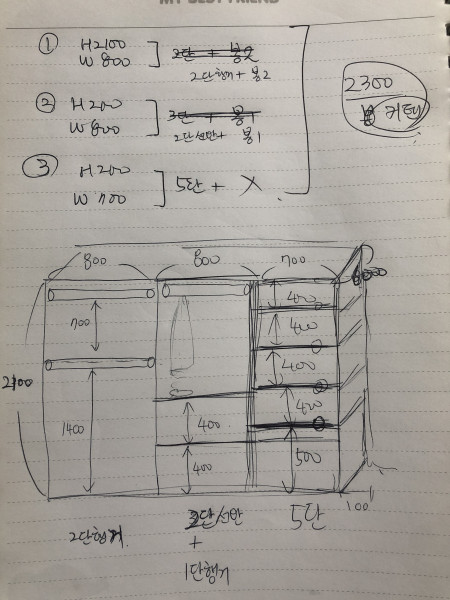 MY BEST FRIEND
① H2100
W 800
2단 + 봉2
2단행거 + 봉2
② H200
W800
3단 + 봉1
2단선반 + 봉1
③ H200
W 700
5단 + X
2300
봉 커텐
800
800
700
2100
700
1400
400
400
400
400
400
400
500
100
2단행거
2단선반
+
1단행거
5단